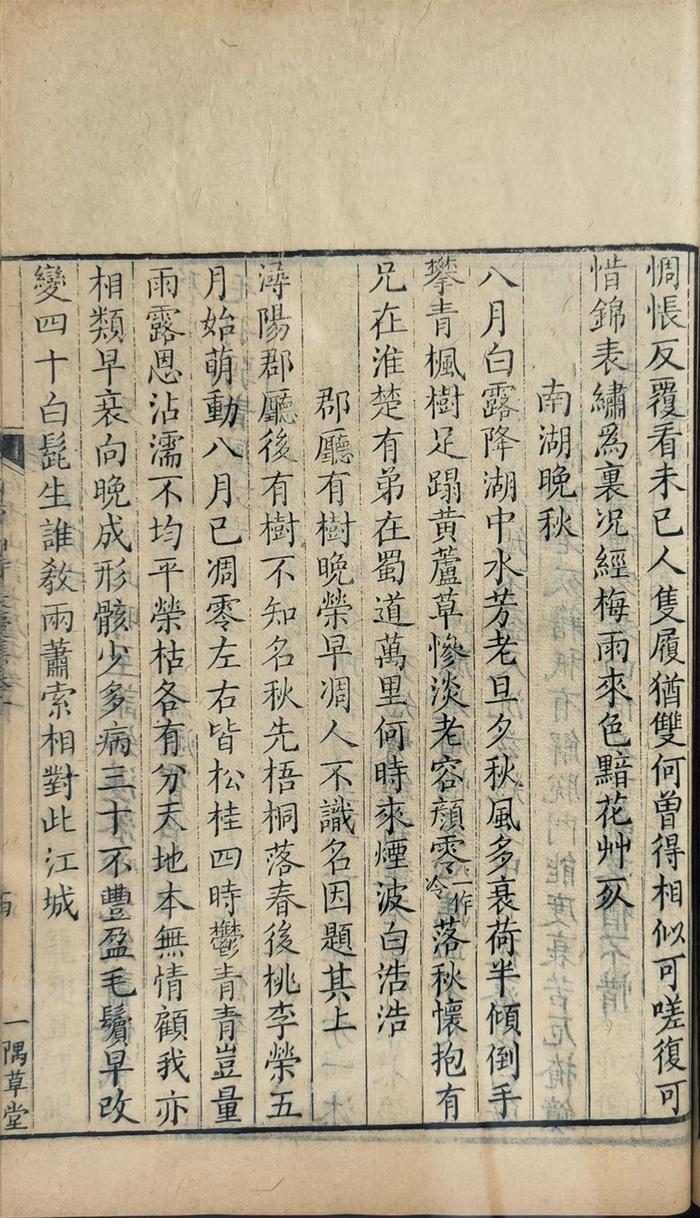 惆悵反覆看未已人隻履猶雙何曾得相似可嗟復可
惜錦表繡爲裏况經梅雨來色黯花艸𣦸
南湖晚秋
八月白露降湖中水芳老旦夕秋風多衰荷半傾倒手
攀青楓樹足蹋黄蘆草慘淡老容顔零一作冷落秋懷抱有
兄在淮楚有弟在蜀道萬里何時來煙波白浩浩
郡廳有樹晚榮早凋人不識名因題其上
潯陽郡廳後有樹不知名秋先梧桐落春後桃李榮五
月始萌動八月已凋零左右皆松桂四時鬱青青豈量
雨露恩沾濡不均平榮枯各有分天地本無情顧我亦
相類早衰向晚成形骸少多病三十不豐盈毛鬢早改
變四十白髭生誰敎兩蕭索相對此江城
一隅草堂